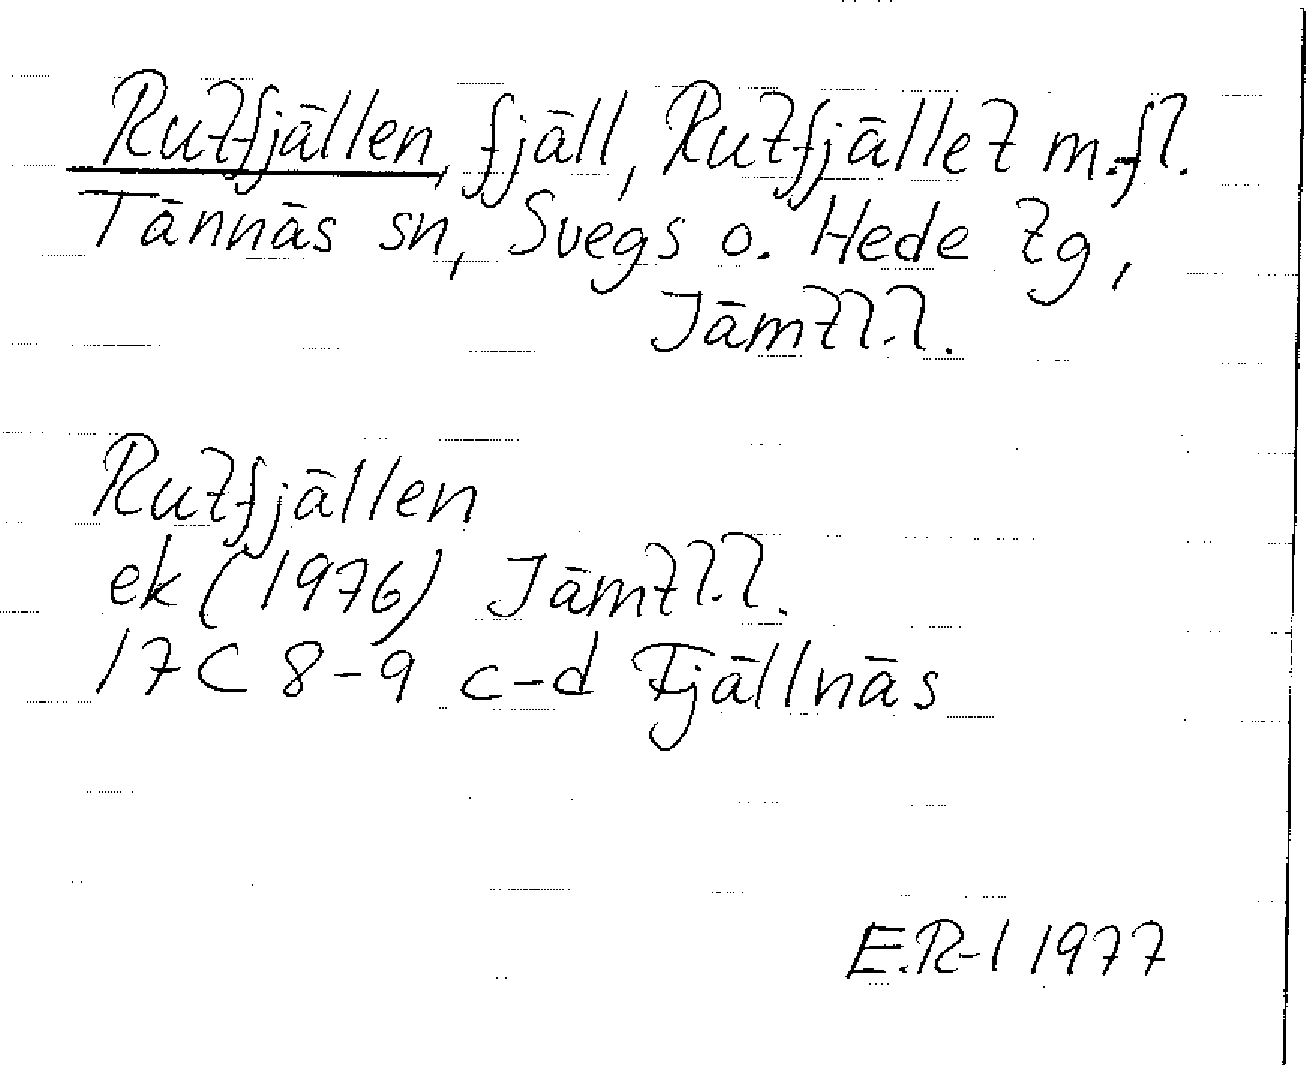 Rutfjällen, fjäll, Rutfjället m.fl.
Tännäs sn, Svegs o. Hede tg,
Jämtl.l.
Rutfjällen
ek (1976) Jämtl.l.
17C 8-9 c-d Fjällnäs
E.R-l 1977